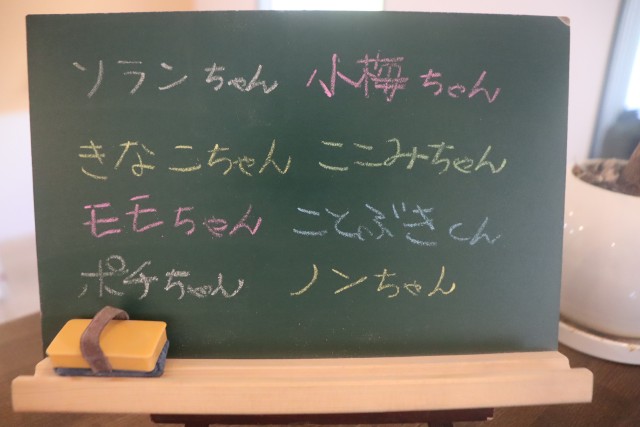 ソランちゃん 小梅ちゃん
きなこちゃん ここみちゃん
モモちゃん ことぶきくん
ポチちゃん ノンちゃん